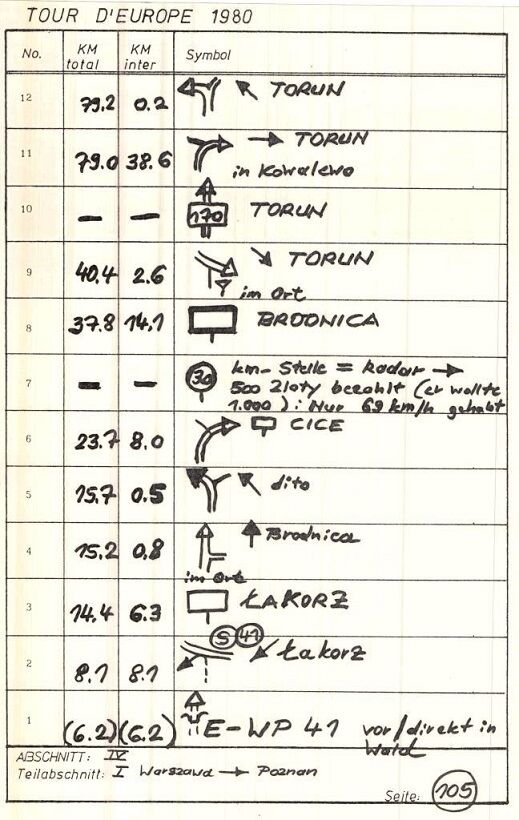 TOUR D'EUROPE 1980
No. KM total KM inter Symbol
12 79.2 0.2 TORUN
11 79.0 38.6 TORUN
in Kowalewo
10 — — 170 TORUN
9 40.4 2.6 TORUN
im Ort
8 37.8 14.1 BRODNICA
7 — — 30 km-Stelle = Radar →
500 Zloty bezahlt (er wollte
1.000): Nur 69 km/h gehabt
6 23.7 8.0 CICE
5 15.7 0.5 dito
4 15.2 0.8 Brodnica
im Ort
3 14.4 6.3 ŁAKORZ
S 41
2 8.1 8.1 Łakorz
1 (6.2) (6.2) E-WP 41 vor/direkt in
Wald
ABSCHNITT: IV
Teilabschnitt: I Warszawa → Poznan
Seite: 105